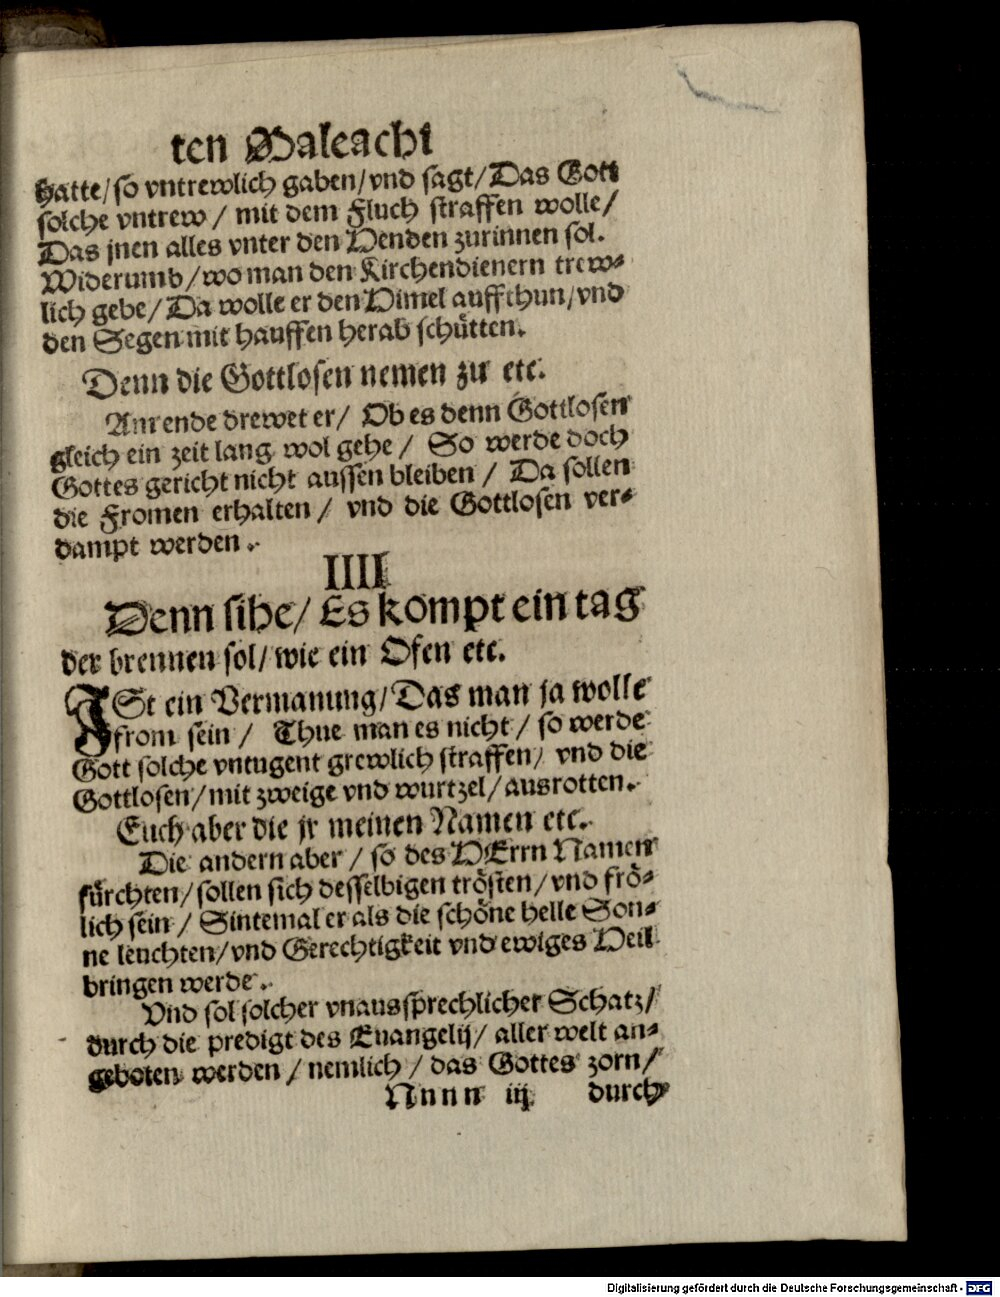 ten Maleachi
hatte/ so vntrewlich gaben/ vnd sagt/ Das Gott
solche vntrew / mit dem Fluch straffen wolle/
Das jnen alles vnter den Henden zurinnen sol.
Widerumb/ wo man den Kirchendienern trew-
lich gebe/ Da wolle er den Himel auffthun/ vnd
den Segen mit hauffen herab schütten.
Denn die Gottlosen nemen zu etc.
Am ende drewet er/ Ob es denn Gottlosen
gleich ein zeit lang wol gehe / So werde doch
Gottes gericht nicht aussen bleiben / Da sollen
die Fromen erhalten / vnd die Gottlosen ver-
dampt werden.
IIII
Denn sihe/ Es kompt ein tag
der brennen sol/ wie ein Ofen etc.
JSt ein Vermanung/ Das man ja wolle
from sein / Thue man es nicht / so werde
Gott solche vntugent grewlich straffen/ vnd die
Gottlosen/ mit zweige vnd wurtzel/ ausrotten.
Euch aber die jr meinen Namen etc.
Die andern aber / so des HErrn Namen
fürchten/ sollen sich desselbigen trösten/ vnd frö-
lich sein / Sintemal er als die schöne helle Son-
ne leuchten/ vnd Gerechtigkeit vnd ewiges Heil
bringen werde.
Vnd sol solcher vnaussprechlicher Schatz/
durch die predigt des Euangelij/ aller welt an-
geboten werden / nemlich / das Gottes zorn/
Nnnn iij durch
Digitalisierung gefördert durch die Deutsche Forschungsgemeinschaft - DFG